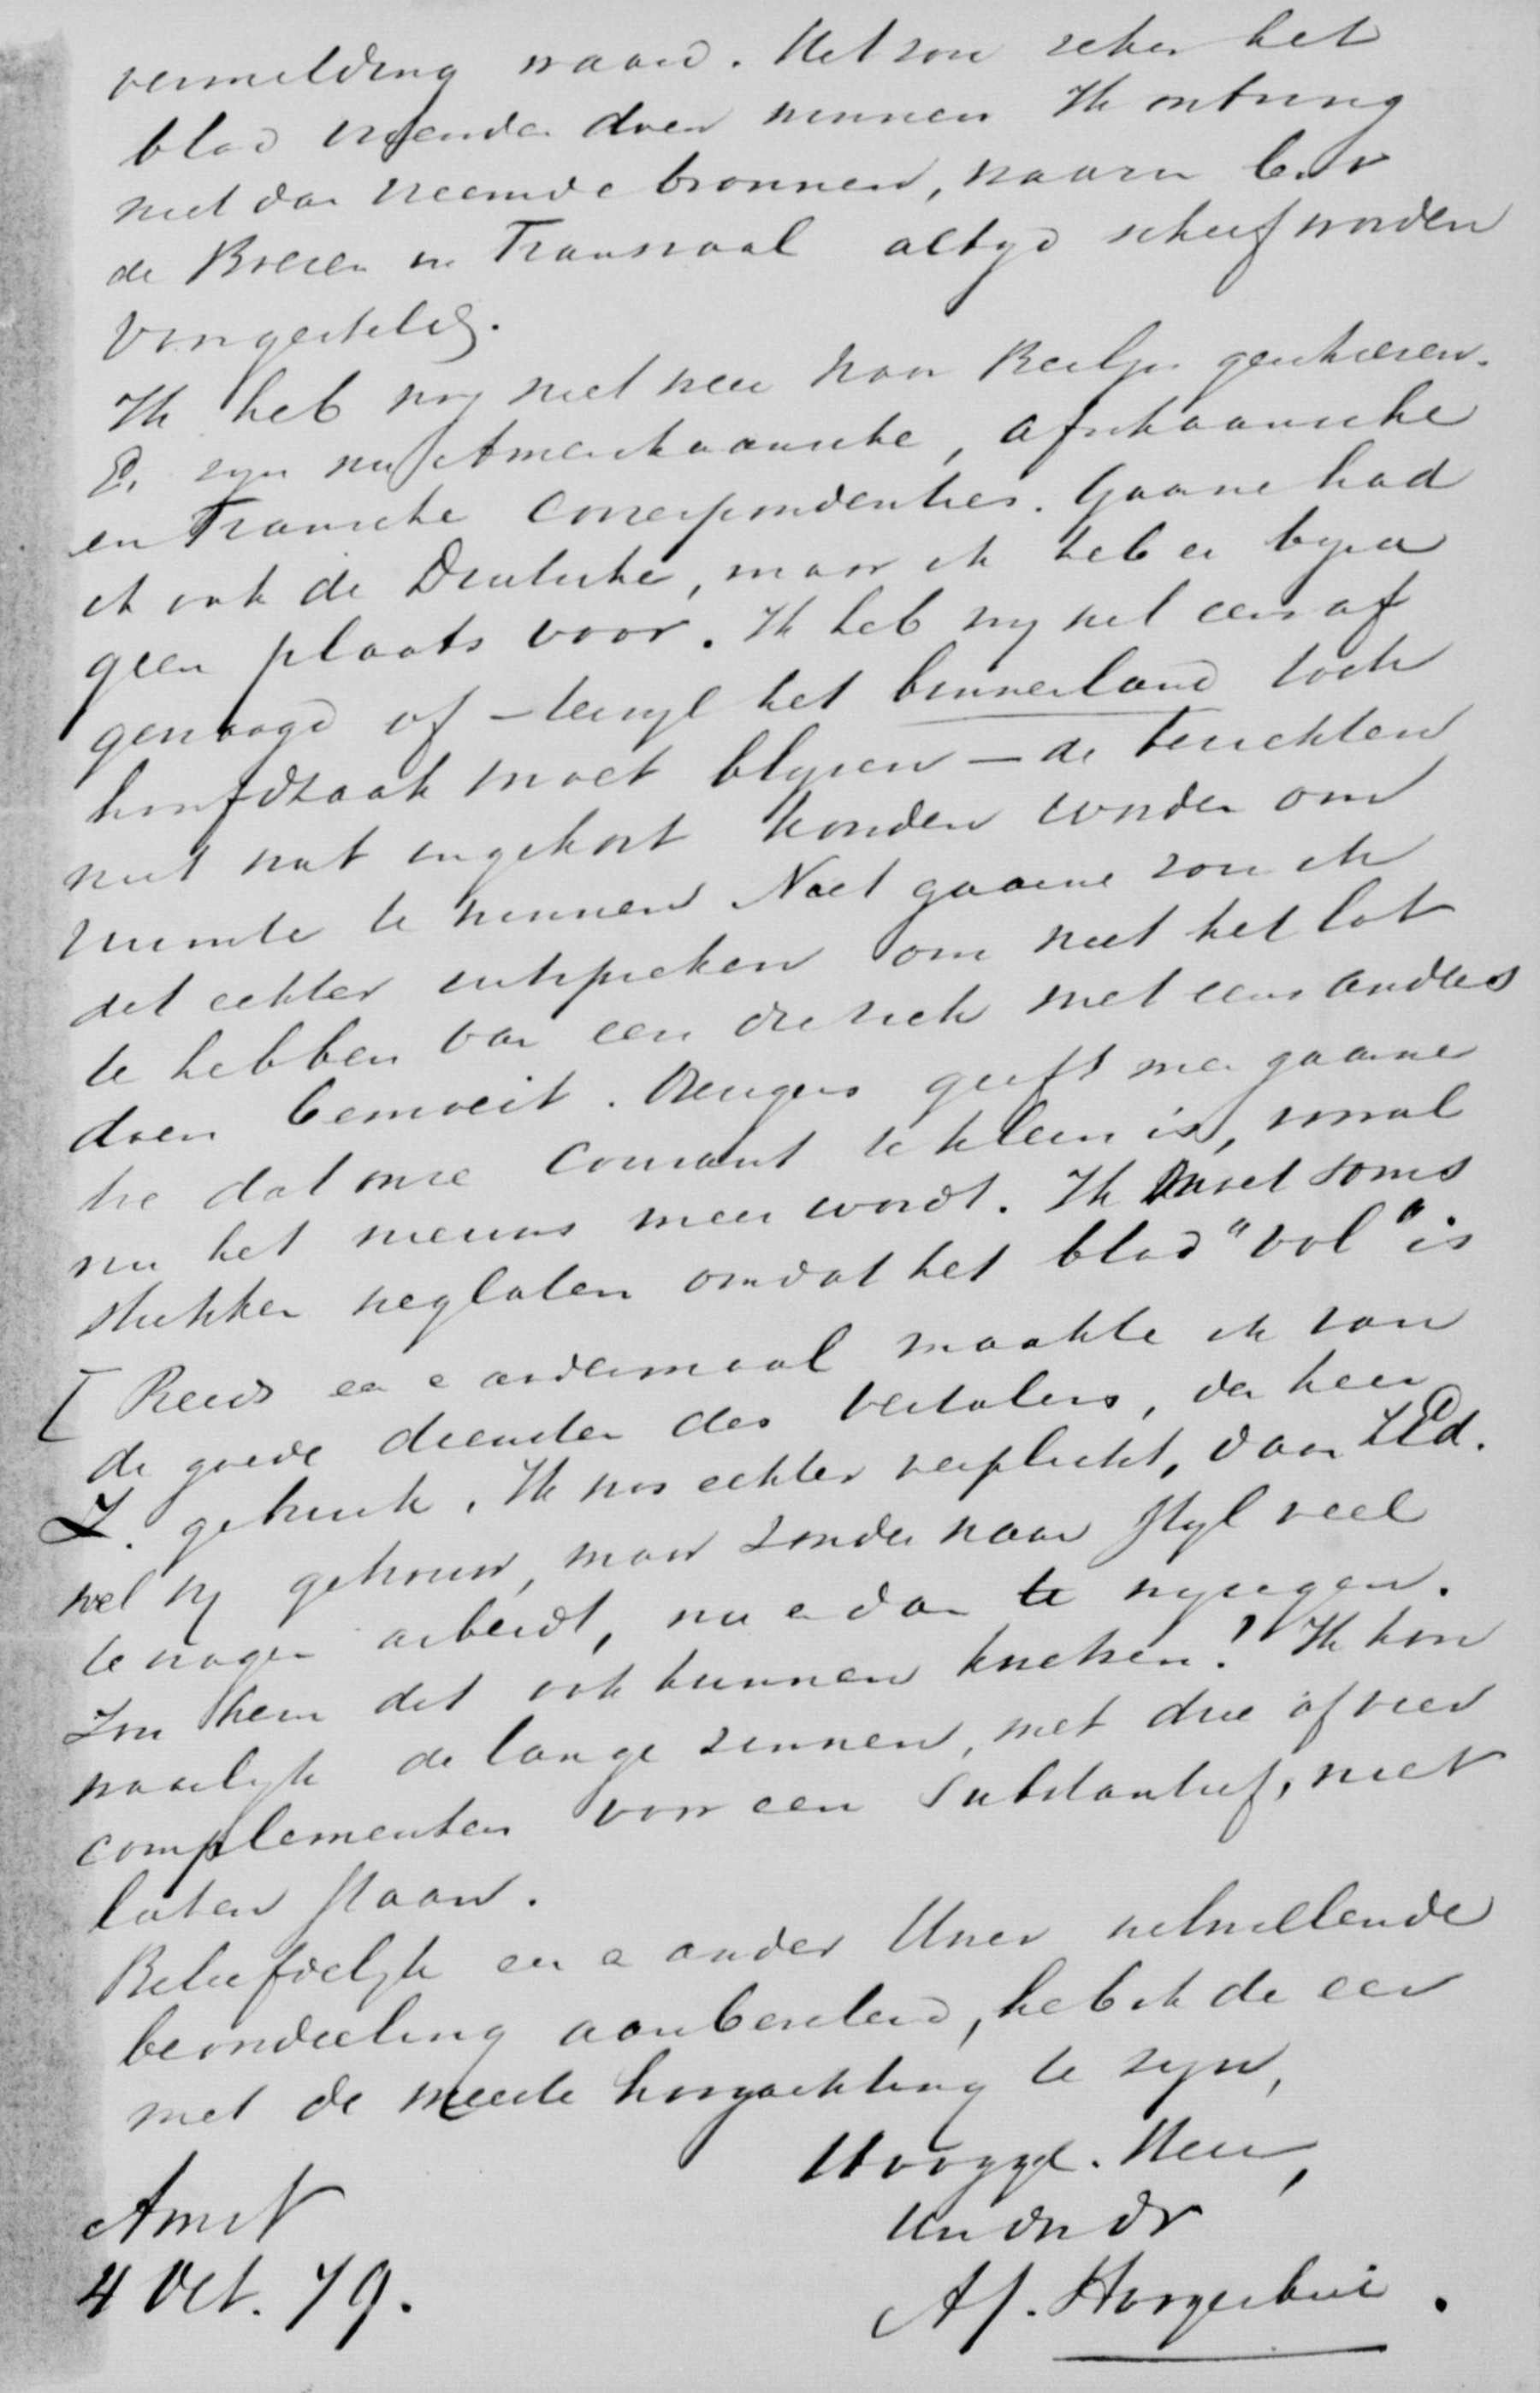 vermelding waard. Het zou zeker het
blad vrienden doen winnen Ik ontving
niet dan vreemde bronnen, waarin b.v.
de Boeren in Transvaal altyd scheef worden
voorgesteld.
Ik heb nog niet weer naar Berlyn geschreven.
Er zyn nu Amerikaansche, Afrikaansche
en Fransche Correspondenties. Gaarne had
ik ook de Duitsche, maar ik heb er byna
geen plaats voor. Ik heb my wel eens af
gevraagd of – terwyl het binnenland toch
hoofdzaak moet blyven – de berichten
niet wat ingekort konden worden om
ruimte te winnen Niet gaarne zou ik
dit echter uitspreken om niet het lot
te hebben van een die zich met eens anders
doen bemoeit. Overigens geeft men gaarne
toe dat onze Courant te klein is, vooral
nu het nieuws meer wordt. Ik moet soms
stukken weglaten omdat het blad "vol" is
[ Reeds een en andermaal maakte ik van
de goede diensten des vertalers, den heer
Z. gebruik. Ik was echter verplicht, daar ZEd.
wel vry getrouw, maar zonder naar styl veel
te vragen arbeidt, nu en dan te wyzigen.
Zou hem dit ook kunnen kwetsen? Ik kon
waarlyk de lange zinnen, met drie of vier
complementen voor een Substantief, niet
laten staan.
Beleefdelyk een en ander Uwer welwillende
beoordeeling aanbevelend, heb ik de eer
met de meeste hoogachting te zyn,
Hooggel. Heer,
Uw dw dr
Amst
4 Oct. 79.